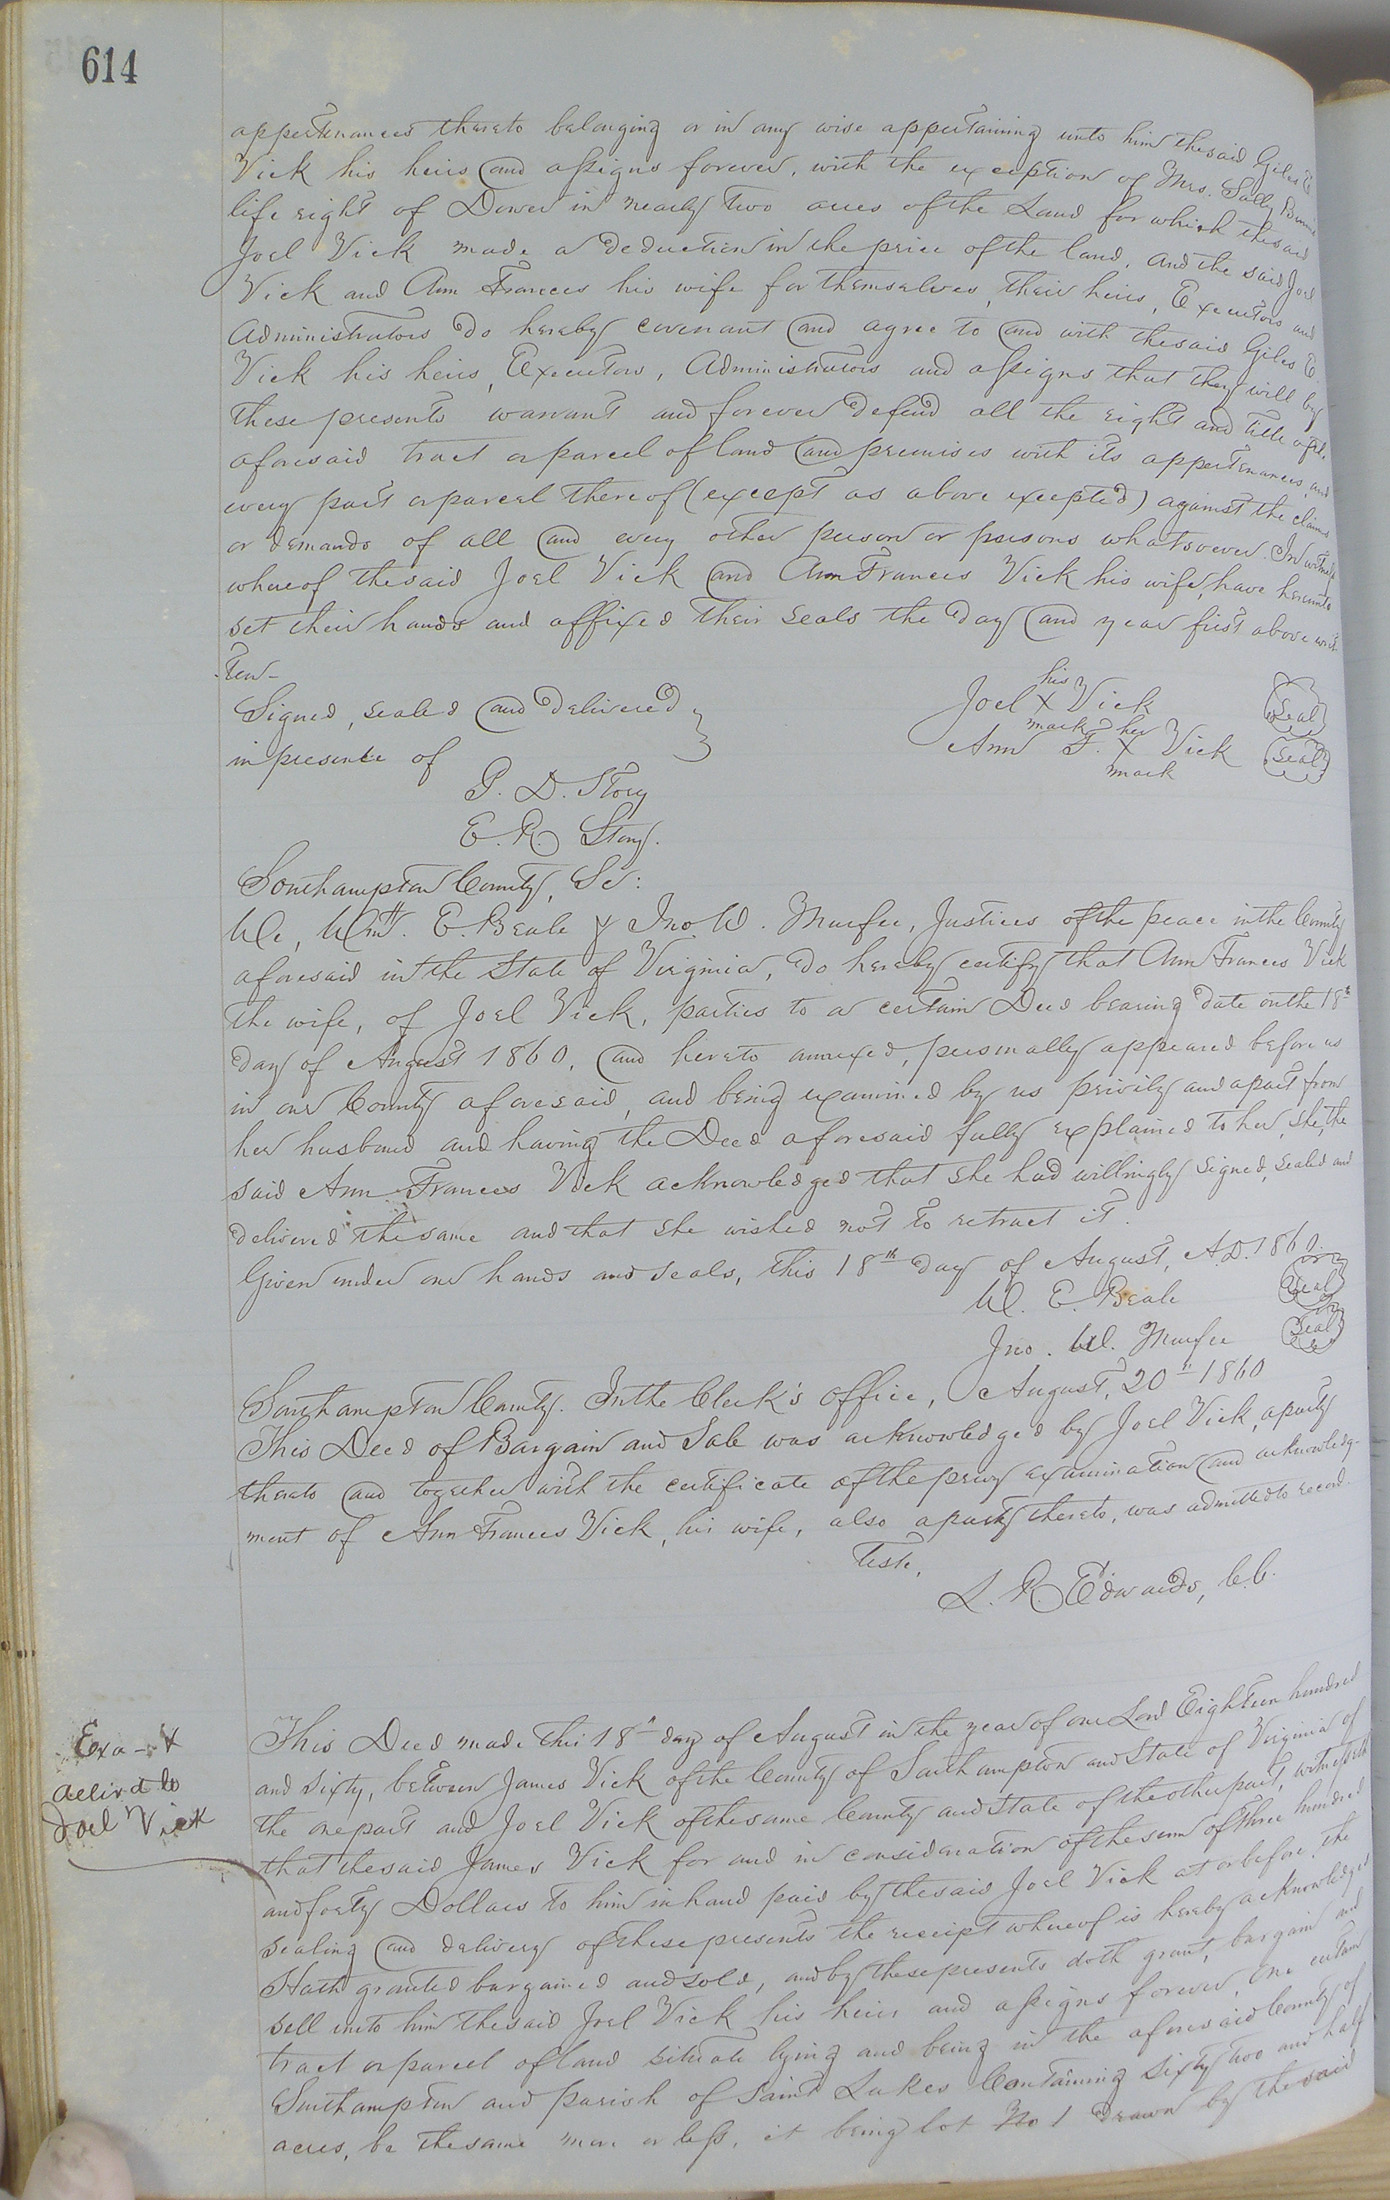 614
appertenances thereto belonging or in any wise appertaining unto him the said Giles E
Vick his heirs and assigns forever, with the exception of Mrs. Sally
life right of Dower in nearly two acres of the Land for which the said
Joel Vick made a deduction in the price of the land, and the said Joel
Vick and Ann Frances his wife for themselves, their heirs, Executors and
Administrators do hereby covenant and agree to and with the said Giles E.
Vick his heirs, Executors, Administrators and assigns that they will by
these presents warrant and forever defend all the right and title of sd.
aforesaid tract or parcel of land and premises with its appertenances, and
every part or parcel thereof (except as above excepted) against the claims
or demands of all and every other person or persons whatsoever. In witness
whereof the said Joel Vick and Ann Frances Vick his wife, have hereunto
set their hands and affixed their seals the day and year first above writ-
-ten-
Signed, sealed and delivered
in presence of
his
Joel X Vick Seal
mark
her
Ann F. X Vick Seal
mark
P. D. Story
E. R. Story.
Southampton County, Sc:
We, Wm. E. Beale & Jno W. Murfee, Justices of the peace in the County
aforesaid in the State of Virginia, do hereby certify that Ann Frances Vick
the wife, of Joel Vick, parties to a certain Deed bearing date on the 18th
day of August 1860, and hereto annexed, personally appeared before us
in our County aforesaid, and being examined by us privily and apart from
her husband and having the Deed aforesaid fully explained to her, she, the
said Ann Frances Vick acknowledged that she had willingly signed, sealed and
delivered the same and that she wished not to retract it.
Given under our hands and seals, this 18th day of August, A.D. 1860.
W. E. Beale Seal
Jno. W. Murfee Seal
Southampton County. In the Clerk's office, August, 20th 1860
This Deed of Bargain and Sale was acknowledged by Joel Vick, a party
thereto and together with the certificate of the privy examination and acknowledg-
ment of Ann Frances Vick, his wife, also a party thereto, was admitted to record.
Teste,
L. R. Edwards, C.C.
Exa - &
delivd to
Joel Vick
This Deed made this 18th day of August in the year of our Lord Eighteen hundred
and sixty, between James Vick of the County of Southampton and State of Virginia of
the one part and Joel Vick of the same County and State of the other part, witnesseth
that the said James Vick for and in consideration of the sum of three hundred
and forty Dollars to him in hand paid by the said Joel Vick at or before the
sealing and delivery of these presents the receipt whereof is hereby acknowledged
Hath granted bargained and sold, and by these presents doth grant, bargain and
sell unto him the said Joel Vick his heirs and assigns forever, One certain
tract or parcel of land situate lying and being in the aforesaid County of
Southampton and parish of Saint Lukes Containing sixty two and half
acres, be the same more or less, it being lot No 1 drawn by the said